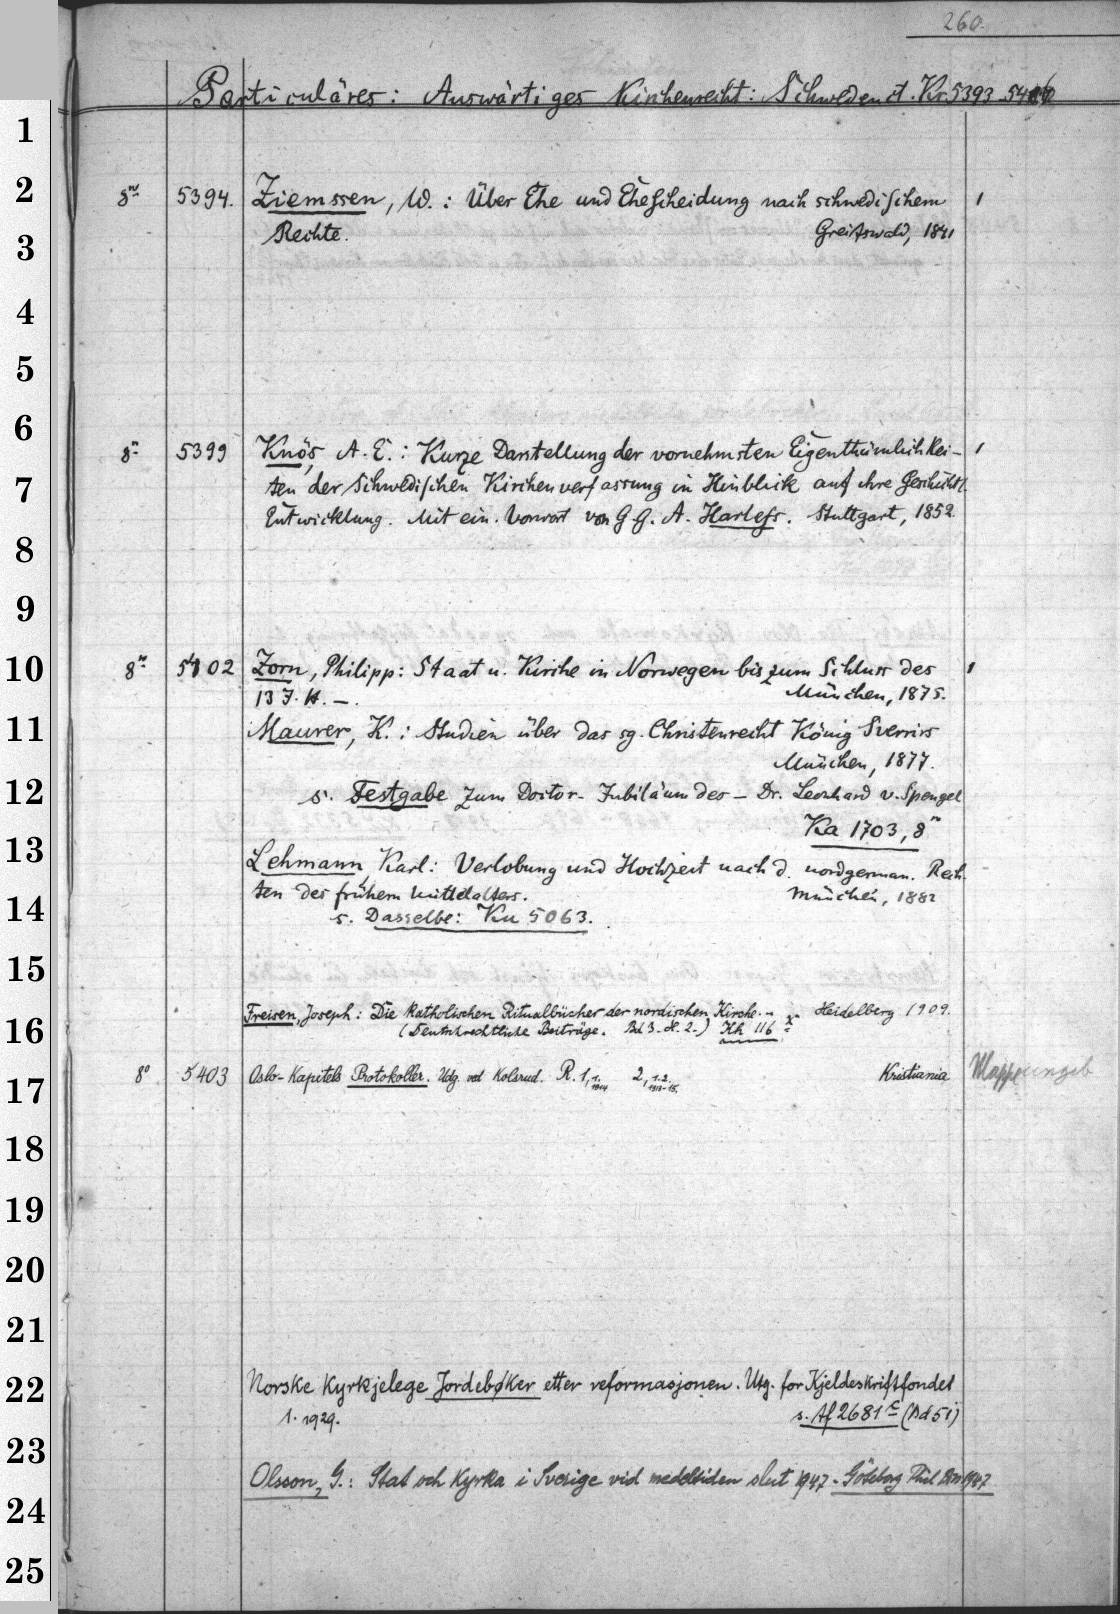 260.
Particuläres: Auswärtiges Kirchenrecht: Schweden ct. Kr. 5393
1
2
8° 5394. Ziemssen, W.: Über Ehe und Ehescheidung nach schwedischem 1
3
Rechte. Greifswald, 1841
4
5
6
8° 5399 Knös, A. E.: Kurze Darstellung der vornehmsten Eigenthümlichkei- 1
7
ten der schwedischen Kirchenverfassung in Hinblick auf ihre geschichtl.
Entwicklung. Mit ein. Vorwort von G. G. A. Harless. Stuttgart, 1852
8
9
10
8° 5402 Zorn, Philipp: Staat u. Kirche in Norwegen bis zum Schluss des 1
13 J. H. —. München, 1875.
11
Maurer, K.: Studien über das sg. Christenrecht König Sverrirs
München, 1877.
12
s. Festgabe zum Doctor-Jubiläum des – Dr. Leonhard v. Spengel
Ka 1703, 8°
13
Lehmann, Karl: Verlobung und Hochzeit nach d. nordgerman. Rech-
14
ten des frühern Mittelalters. München, 1882
s. Dasselbe: Ku 5063.
15
Freisen, Joseph: Die katholischen Ritualbücher der nordischen Kirche. – Heidelberg 1909.
16
(Deutschrechtliche Beiträge. Bd 3. H. 2.) Hk 116 x
17
8° 5403 Oslo-Kapitels Protokoller. Udg. ved Kolsrud. R. 1, 1. 1914 2, 1-2. 1913-15. Kristiania Mappe ungeb
18
19
20
21
22
Norske Kyrkjelege Jordebøker etter reformasjonen. Utg. for Kjeldeskriftfondet
1. 1929. s. Af 2681 c (Bd 51)
23
Olsson, G.: Stat och Kyrka i Sverige vid medeltiden slut 1947 - Göteborg Phil Diss 1947
24
25